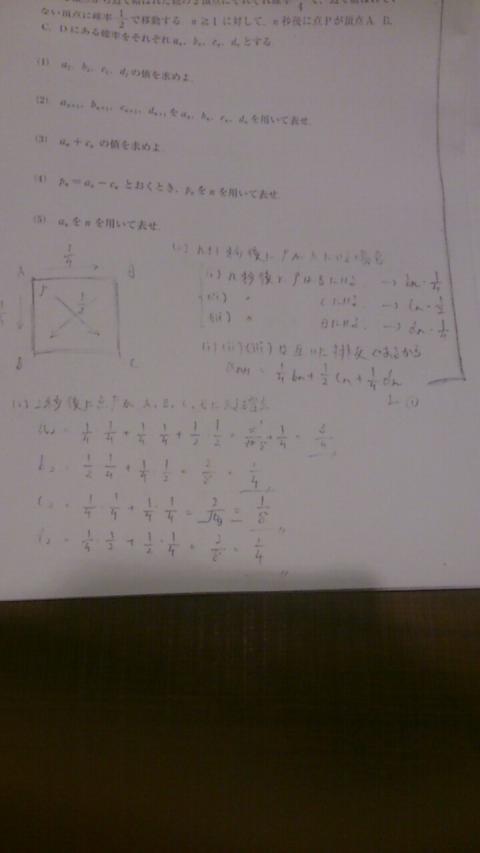 ない頂点に確率 1/2 で移動する. n≧1 に対して, n 秒後に点Pが頂点A, B,
C, D にある確率をそれぞれ aₙ, bₙ, cₙ, dₙ とする.
(1) a₂, b₂, c₂, d₂ の値を求めよ.
(2) aₙ₊₁, bₙ₊₁, cₙ₊₁, dₙ₊₁ を aₙ, bₙ, cₙ, dₙ を用いて表せ.
(3) aₙ+cₙ の値を求めよ.
(4) pₙ=aₙ-cₙ とおくとき, pₙ を n を用いて表せ.
(5) aₙ を n を用いて表せ.
1/4
A B
P
1/2
C
n+1秒後にPがAにいる場合
(i) n秒後にPはBにいる → bn・1/4
(ii) 〃 Cにいる → Cn・1/2
(iii) 〃 にいる → dn・1/4
(i)(ii)(iii)は互いに排反であるから
an+1 = 1/4 bn + 1/2 Cn + 1/4 dn
①
2秒後に点Pが A, B, C,
= 1/4・1/4 + 1/4・1/4 + 1/2・1/2 =
b2 = 1/2・1/4 + 1/4・1/2 = 2/8 = 1/4
C2 = 1/4・1/4 + 1/4・1/4 = 2/16 = 1/8
= 1/4・1/2 + 1/2・1/4 = 2/8 = 1/4